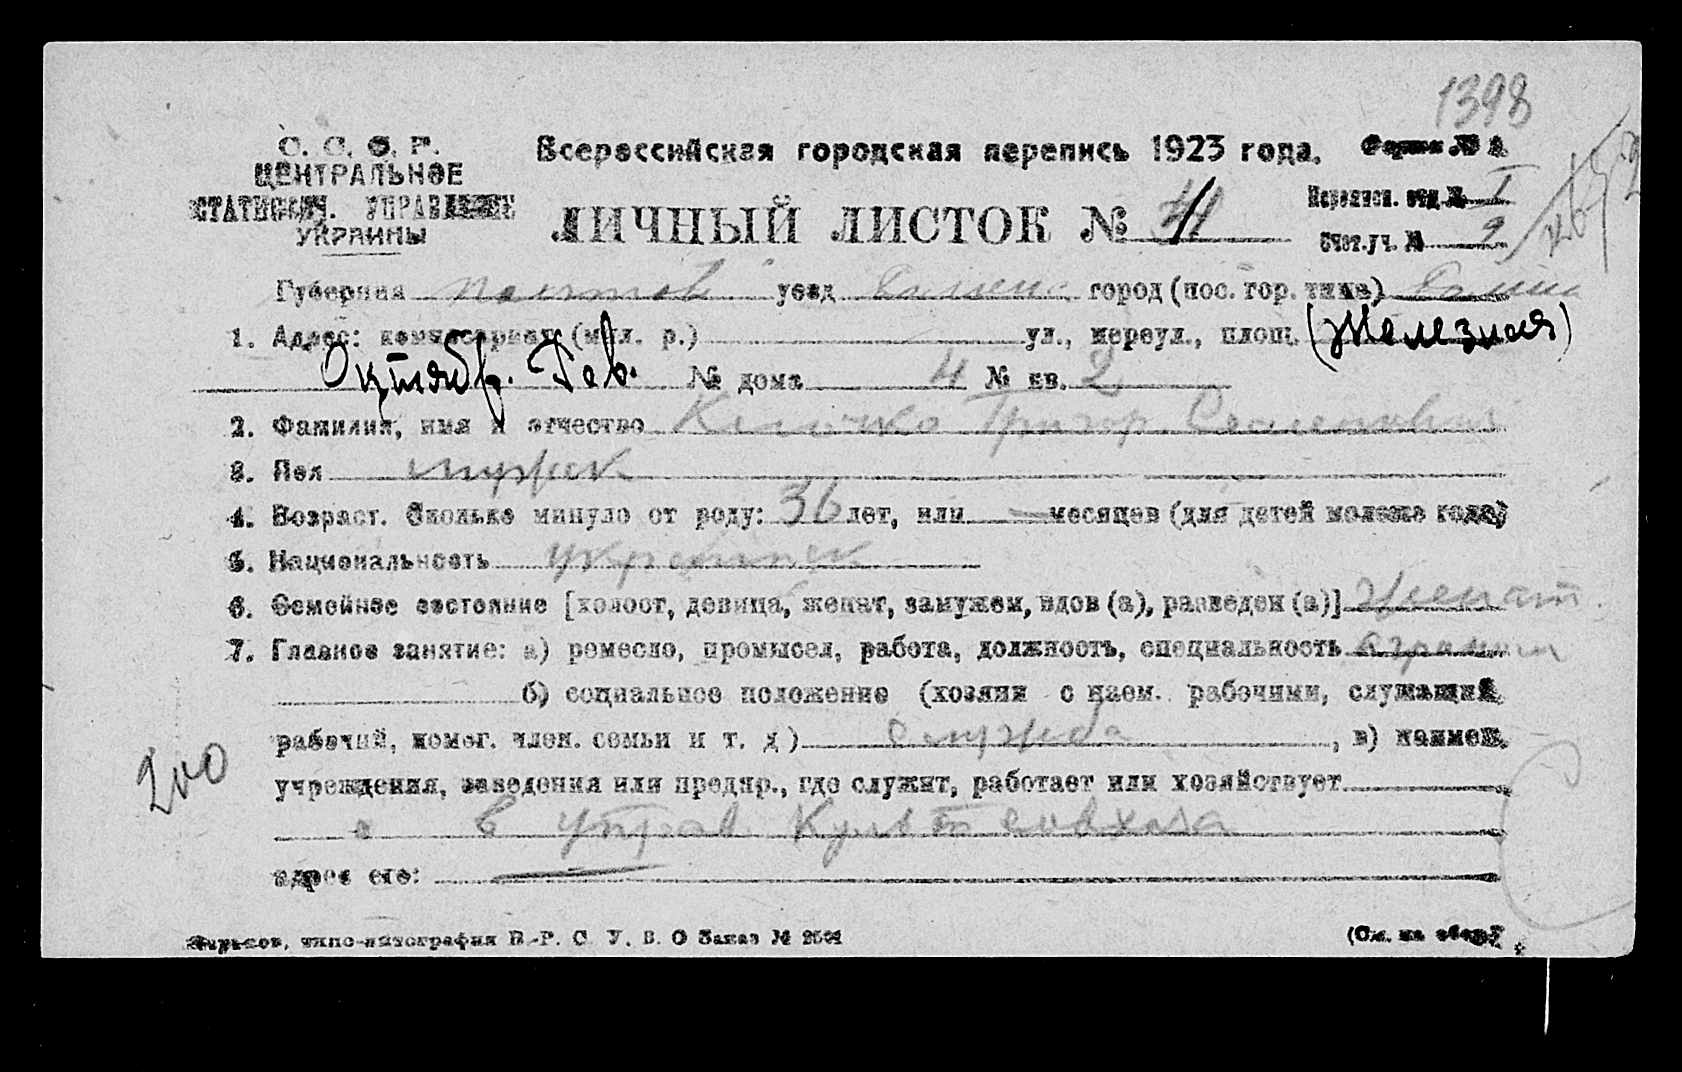 1398
С. С. С. Р.
ЦЕНТРАЛЬНОЕ
СТАТИСТИЧ. УПРАВЛЕНИЕ
УКРАИНЫ
Всероссийская городская перепись 1923 года.
Форма № А
ЛИЧНЫЙ ЛИСТОК №
Переписн. отд. № I
Счет. уч. № 9
Губерния Полтав уезд город (пос. гор. типа)
1. Адрес: комиссариат (мил. р.) ул., переул., площ. (Железная)
Октябр. Рев. № дома 4 № кв. 2
2. Фамилия, имя и отчество Клочко Григор. Семенович
3. Пол мужск
4. Возраст. Сколько минуло от роду: 36 лет, или — месяцев (для детей моложе года)
5. Национальность украинец
6. Семейное состояние [холост, девица, женат, замужем, вдов (а), разведен (а)] женат.
7. Главное занятие: а) ремесло, промысел, работа, должность, специальность агроном
б) социальное положение (хозяин с наем. рабочими, служащий,
рабочий, помог. член. семьи и т. д) служба, в) наимен.
учреждения, заведения или предпр., где служит, работает или хозяйствует
в управ Культ совхоза
адрес его: —
200
Харьков, типо-литография В.-Р. С. У. В. О Заказ №
(См. на обор.)